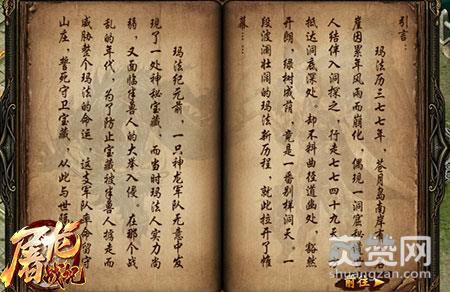 引言
玛法历三七七年，苍月岛南岸有
崖因累年风雨而崩化，偶现一洞窟秘道
人结伴入洞探之，行走七七四十九天
抵达洞底深处。却不料曲径道幽处，豁然
开朗，绿树成荫，竟是一番别样洞天。一
段波澜壮阔的玛法新历程，就此拉开了帷
幕……
玛法纪元前，一只神龙军队无意中发
现了一处神秘宝藏。而当时玛法人实力尚
弱，又面临半兽人的大举入侵，在那个战
乱的年代，为了防止宝藏被半兽人掳走而
威胁整个玛法的命运，这支军队奉命留守
山庄，誓死守卫宝藏，从此与世隔
屠龙
战纪
前往
爽赞网
shuangzan.com